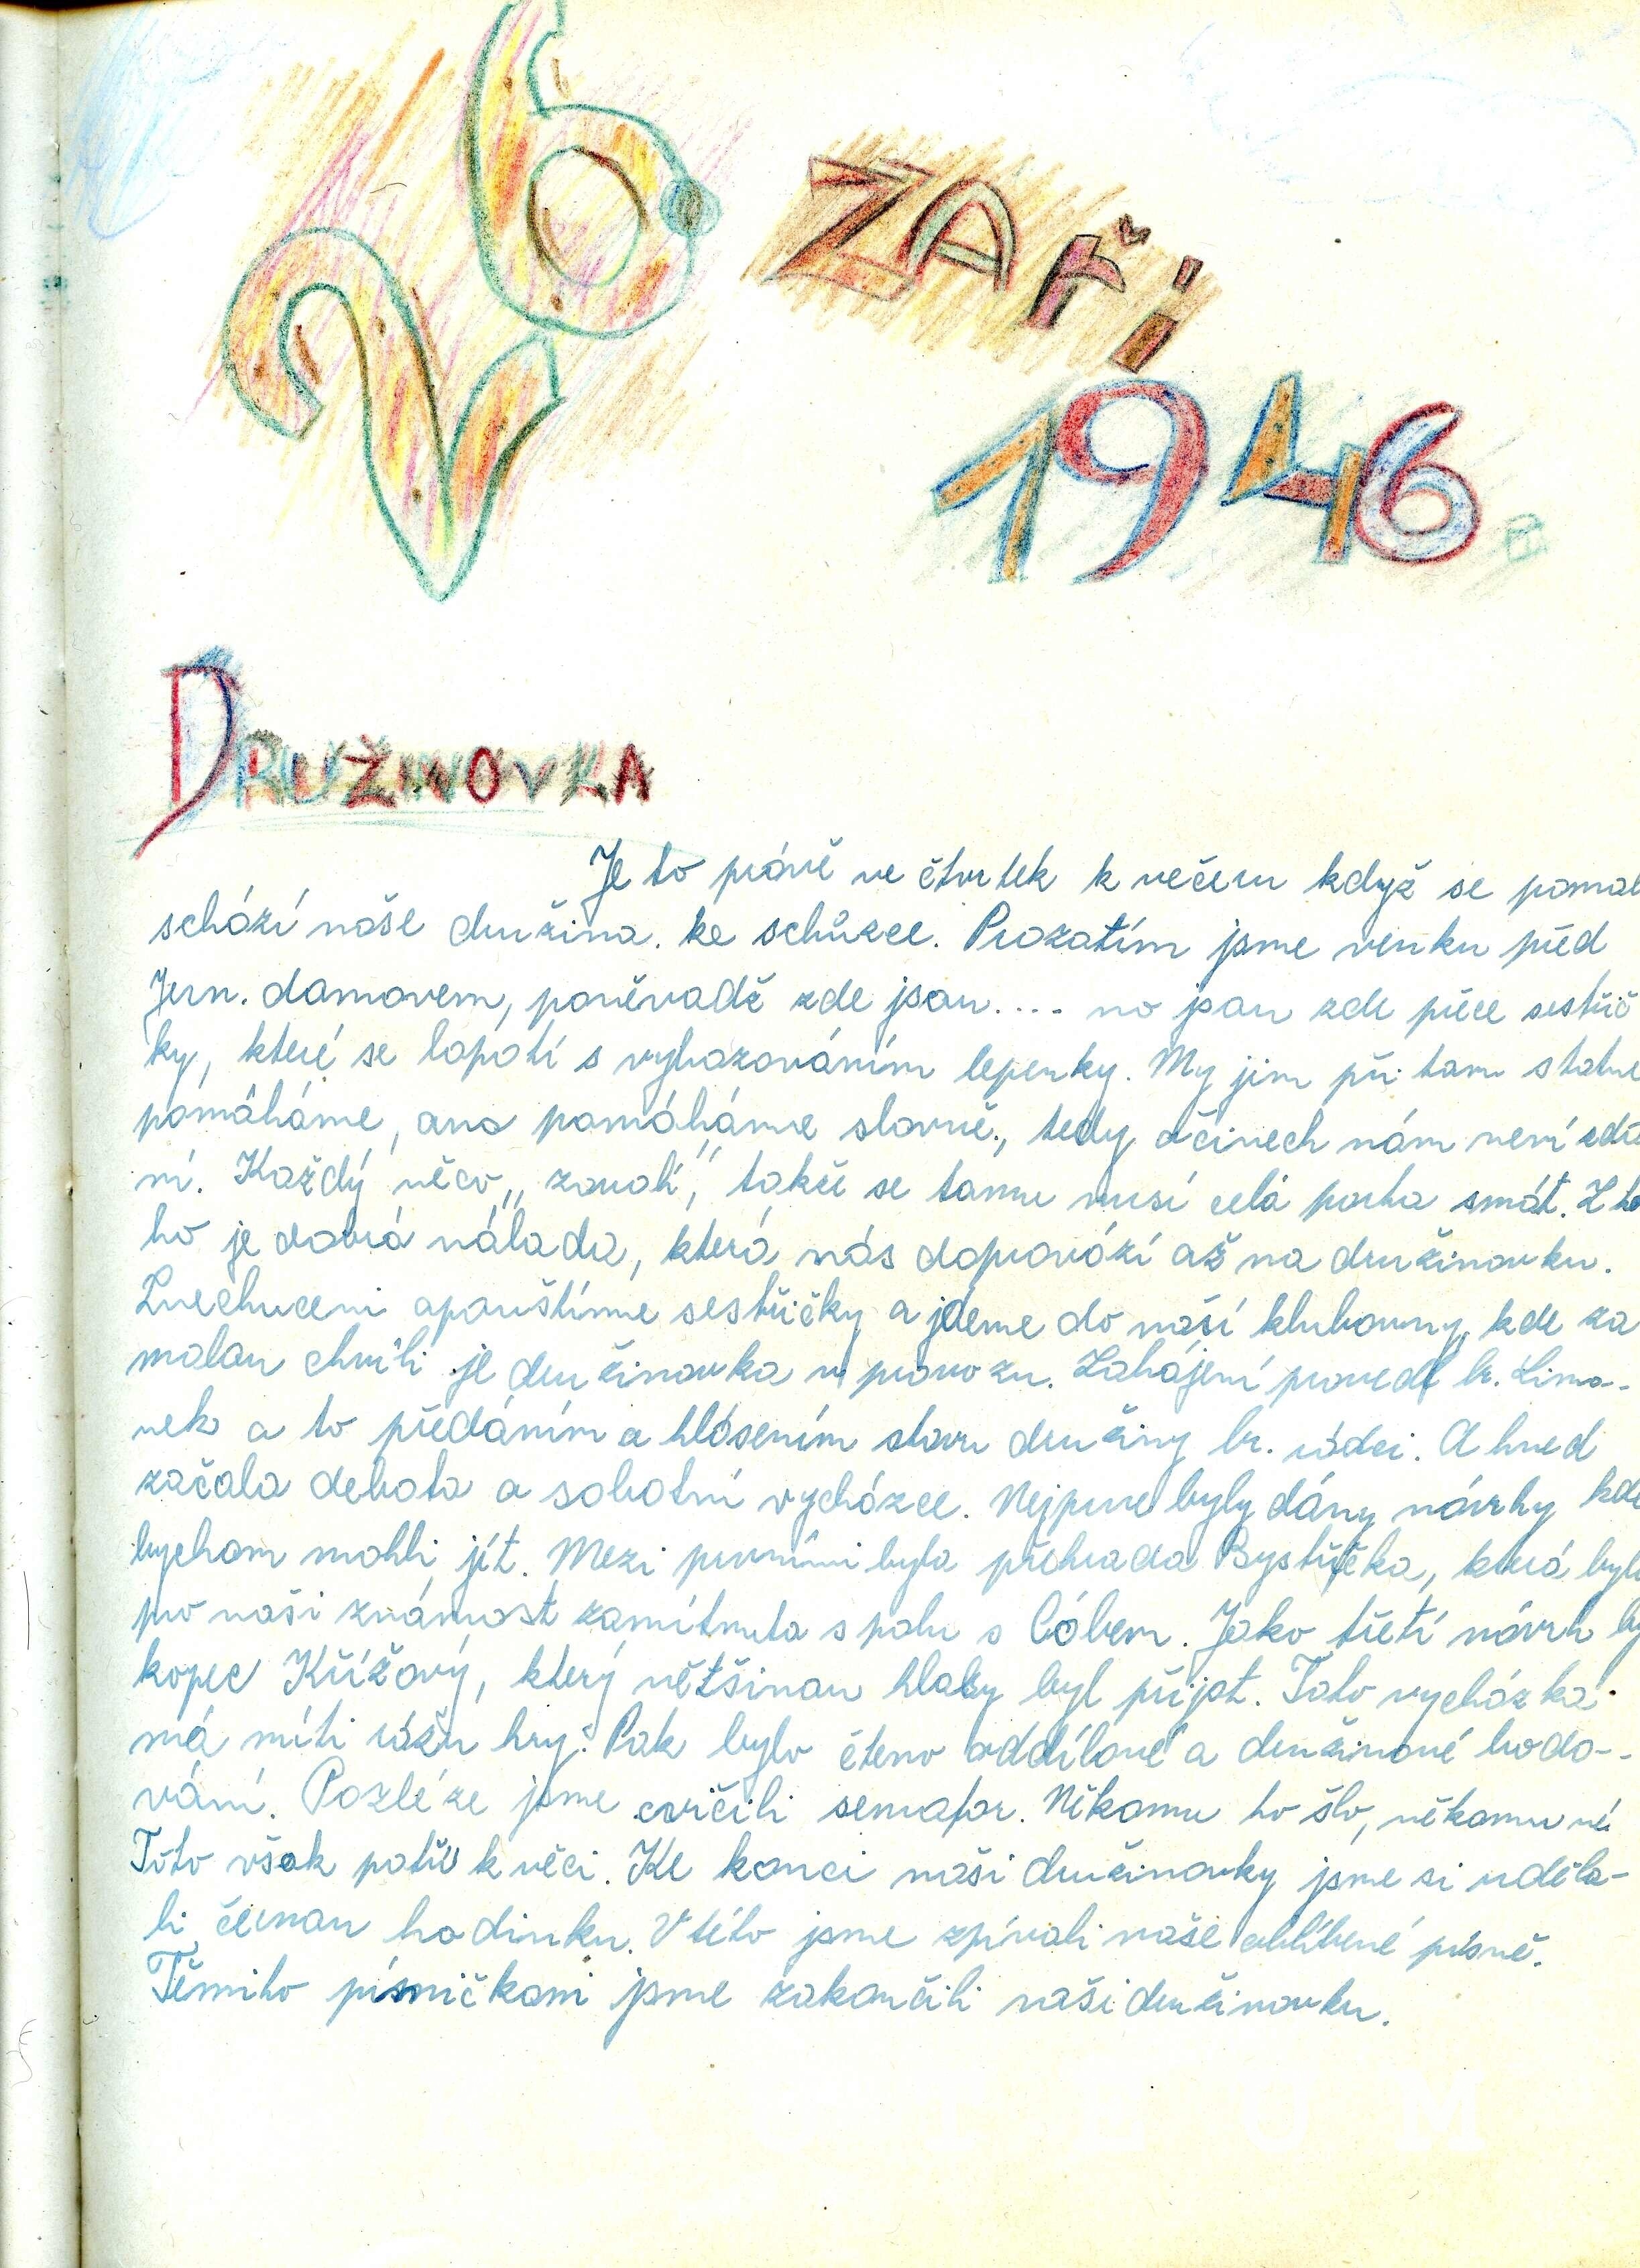 26. ZÁŘÍ
1946.
DRUŽINOVKA
Je to právě ve čtvrtek k večeru když se pomal
schází naše družina. ke schůzce. Prozatím jsme venku před
Jun. domovem, poněvadž zde jsou.... no jsou zde přece sestřič
ky, které se lopotí s vyhazováním lepenky. My jim při tom statně
pomáháme, ano pomáháme slovně, tedy o činech nám není zdá
ní. Každý něco „zavalí", takže se tomu musí celá parta smát. Z to
ho je dobrá nálada, která nás doprovází až na družinovku.
Znechuceni opouštíme sestřičky a jdeme do naší klubovny, kde za
malou chvíli je družinovka v provozu. Zahájení provedl br. Limo-
nek a to předáním a hlásením stavu družiny br. rádci. A hned
začala debata o sobotní vycházce. Nejprve byly dány návrhy kde
bychom mohli jít. Mezi prvními byla přehrada Bystřička, která byla
pro naši známost zamítnuta spolu s Cábem. Jako třetí návrh by
kopec Křížový, který většinou hlasy byl přijat. Tato vycházka
má míti rázu hry. Pak bylo čteno oddílové a družinové bodo-
vání. Pozléze jsme cvičili semafor. Někomu to šlo, někomu né
Toto však patří k věci. Ke konci naši družinovky jsme si uděla-
li černou hodinku. V této jsme zpívali naše oblíbené písně.
Těmito písničkami jsme zakončili naši družinovku.